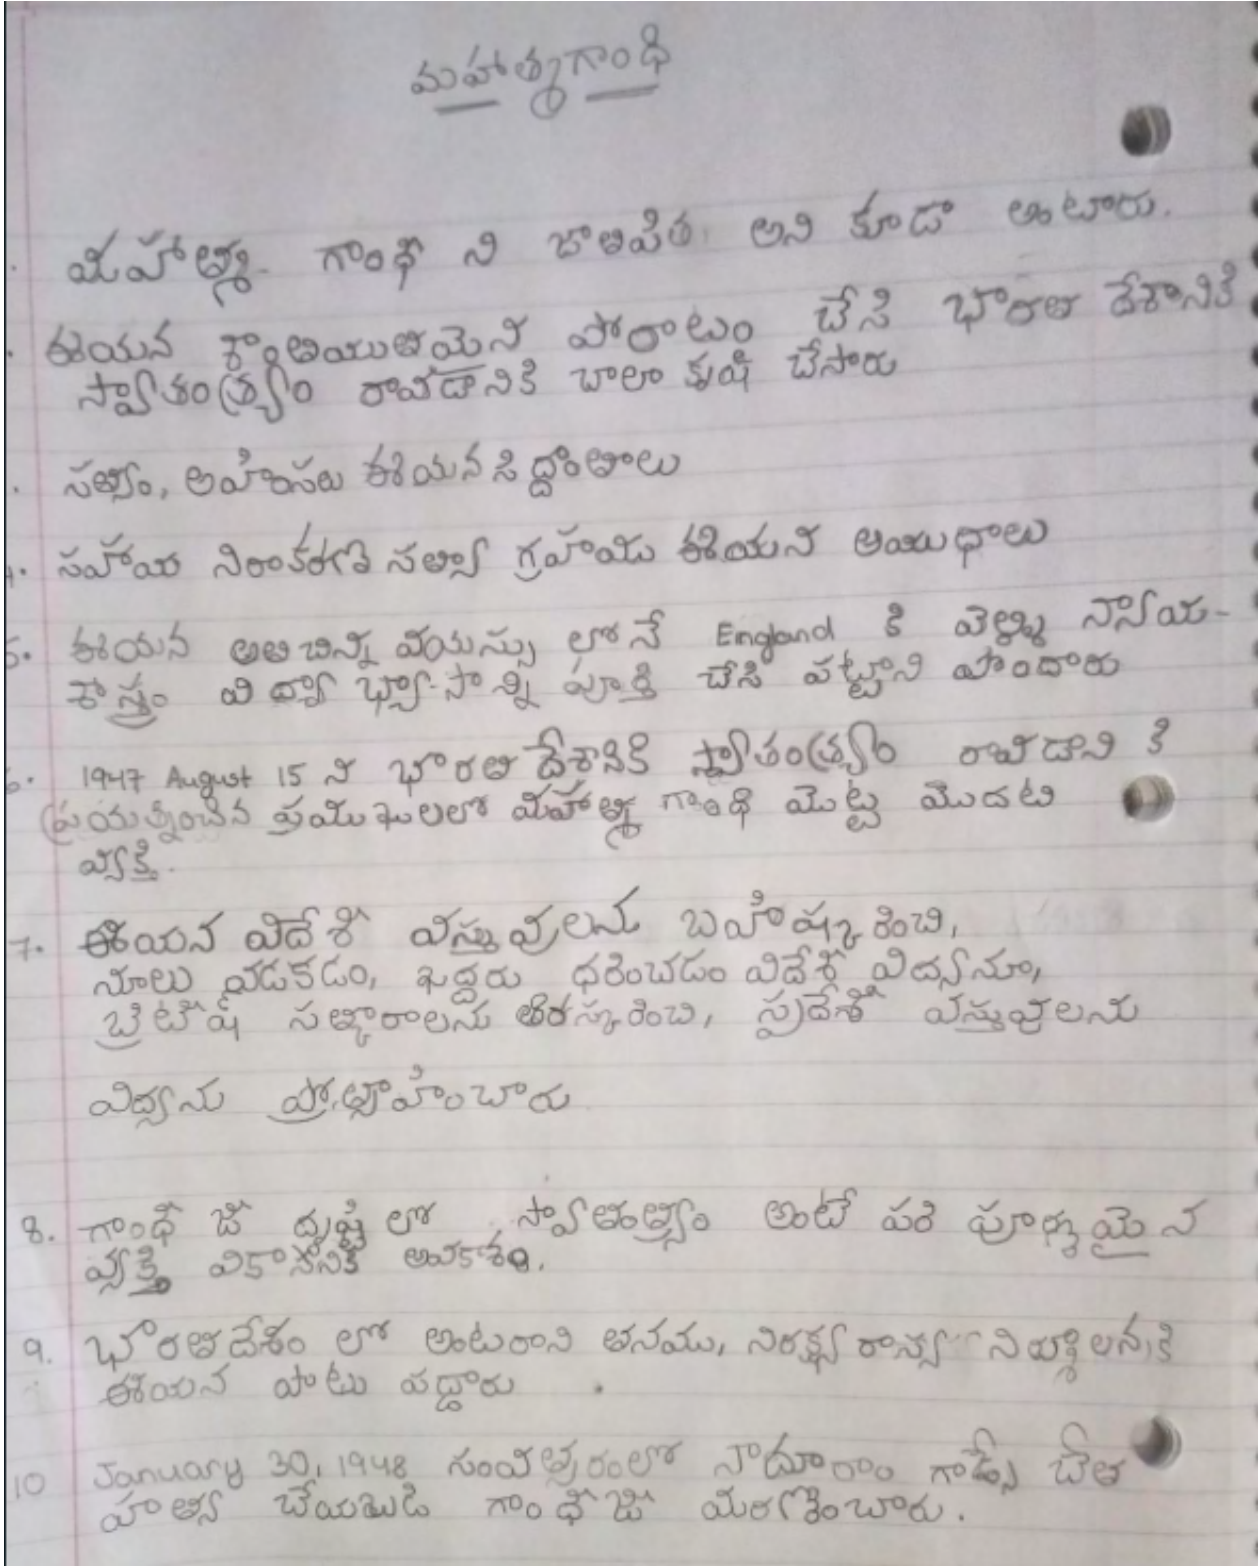 మహాత్మగాంధి
. మహాత్మ గాంధీ ని జాతిపిత అని కూడా అంటారు.
. ఈయన శాంతియుతమైన పోరాటం చేసి భారత దేశానికి
స్వాతంత్ర్యం రావడానికి చాలా కృషి చేసారు
. సత్యం, అహింసలు ఈయన సిద్ధాంతాలు
4. సహాయ నిరాకరణ సత్యా గ్రహము ఈయన ఆయుధాలు
5. ఈయన అతి చిన్న వయస్సు లోనే England కి వెళ్ళి న్యాయ-
శాస్త్రం విద్యా భ్యాసాన్ని పూర్తి చేసి పట్టాని పొందారు
6. 1947 August 15 న భారత దేశానికి స్వాతంత్ర్యం రావడాని కి
ప్రయత్నించిన ప్రముఖులలో మహాత్మ గాంధి మొట్ట మొదటి
వ్యక్తి.
7. ఈయన విదేశీ వస్తువులను బహిష్కరించి,
నూలు వడకడం, ఖద్దరు ధరించడం విదేశీ విద్యనూ,
బ్రిటిష్ సత్కారాలను తిరస్కరించి, స్వదేశీ వస్తువులను
విద్యను ప్రోత్సాహించారు
8. గాంధీ జీ దృష్టి లో స్వాతంత్ర్యం అంటే పరి పూర్ణమైన
వ్యక్తి వికాసానికి అవకాశం.
9. భారతదేశం లో అంటరాని తనము, నిరక్ష్య రాస్య నిర్మూలనకి
ఈయన పాటు పడ్డారు .
10 January 30, 1948 సంవత్సరంలో నాధూరాం గాడ్సే చేత
హత్య చేయబడి గాంధీజీ మరణించారు.